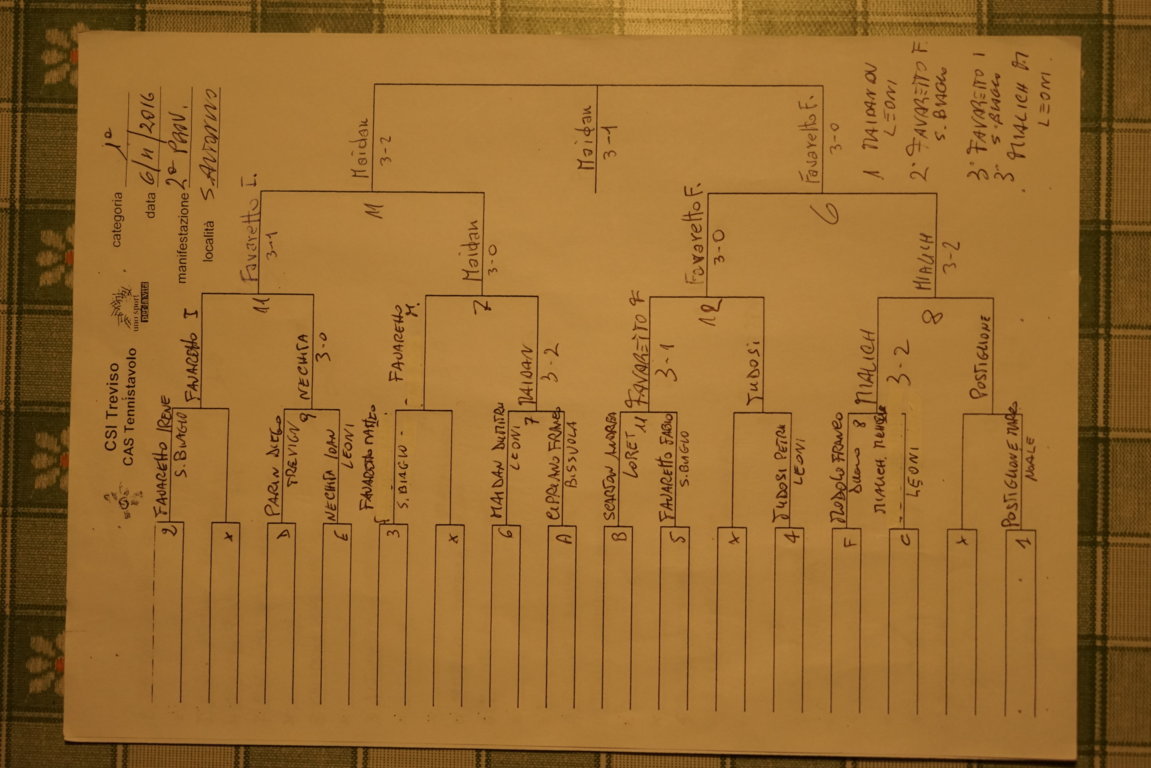 CSI Treviso
CAS Tennistavolo
categoria 1a
data 6/11/2016
manifestazione 2a PROV.
località S. ANTONINO
2 FAVARETTO IRENE
S. BIAGIO
x
FAVARETTO I
D PARIN DIEGO
TREVIGN
E NECHITA IOAN
LEONI
9 NECHITA
3-0
11 Favaretto I.
3-1
3 FAVARETTO MATTEO
S. BIAGIO
x
FAVARETTO M.
6 MAIDAN DUMITRU
LEONI
A CIPRIANO FRANCO
BISSUOLA
7 MAIDAN
3-2
7 Maidan
3-0
11 Maidan
3-2
B SCARTON ANDREA
LORET
5 FAVARETTO FABIO
S. BIAGIO
11 FAVARETTO F
3-1
x
4 TUDOSI PETRU
LEONI
TUDOSI
12 Favaretto F.
3-0
F MODOLO FRANCO
C MIALICH
LEONI
8 MIALICH
3-2
x
1 POSTIGLIONE MARCO
NOALE
POSTIGLIONE
8 MIALICH
3-2
6 Favaretto F.
3-0
Maidan
3-1
1 MAIDAN DU
LEONI
2° FAVARETTO F.
S. BIAGIO
3° FAVARETTO I
S. BIAGIO
3° MIALICH M
LEONI.